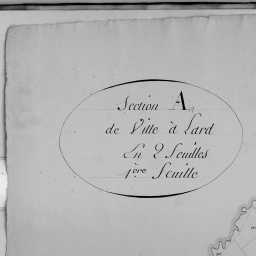 Section A,
de Ville à Lard
En 2 Feuilles
1ère Feuille